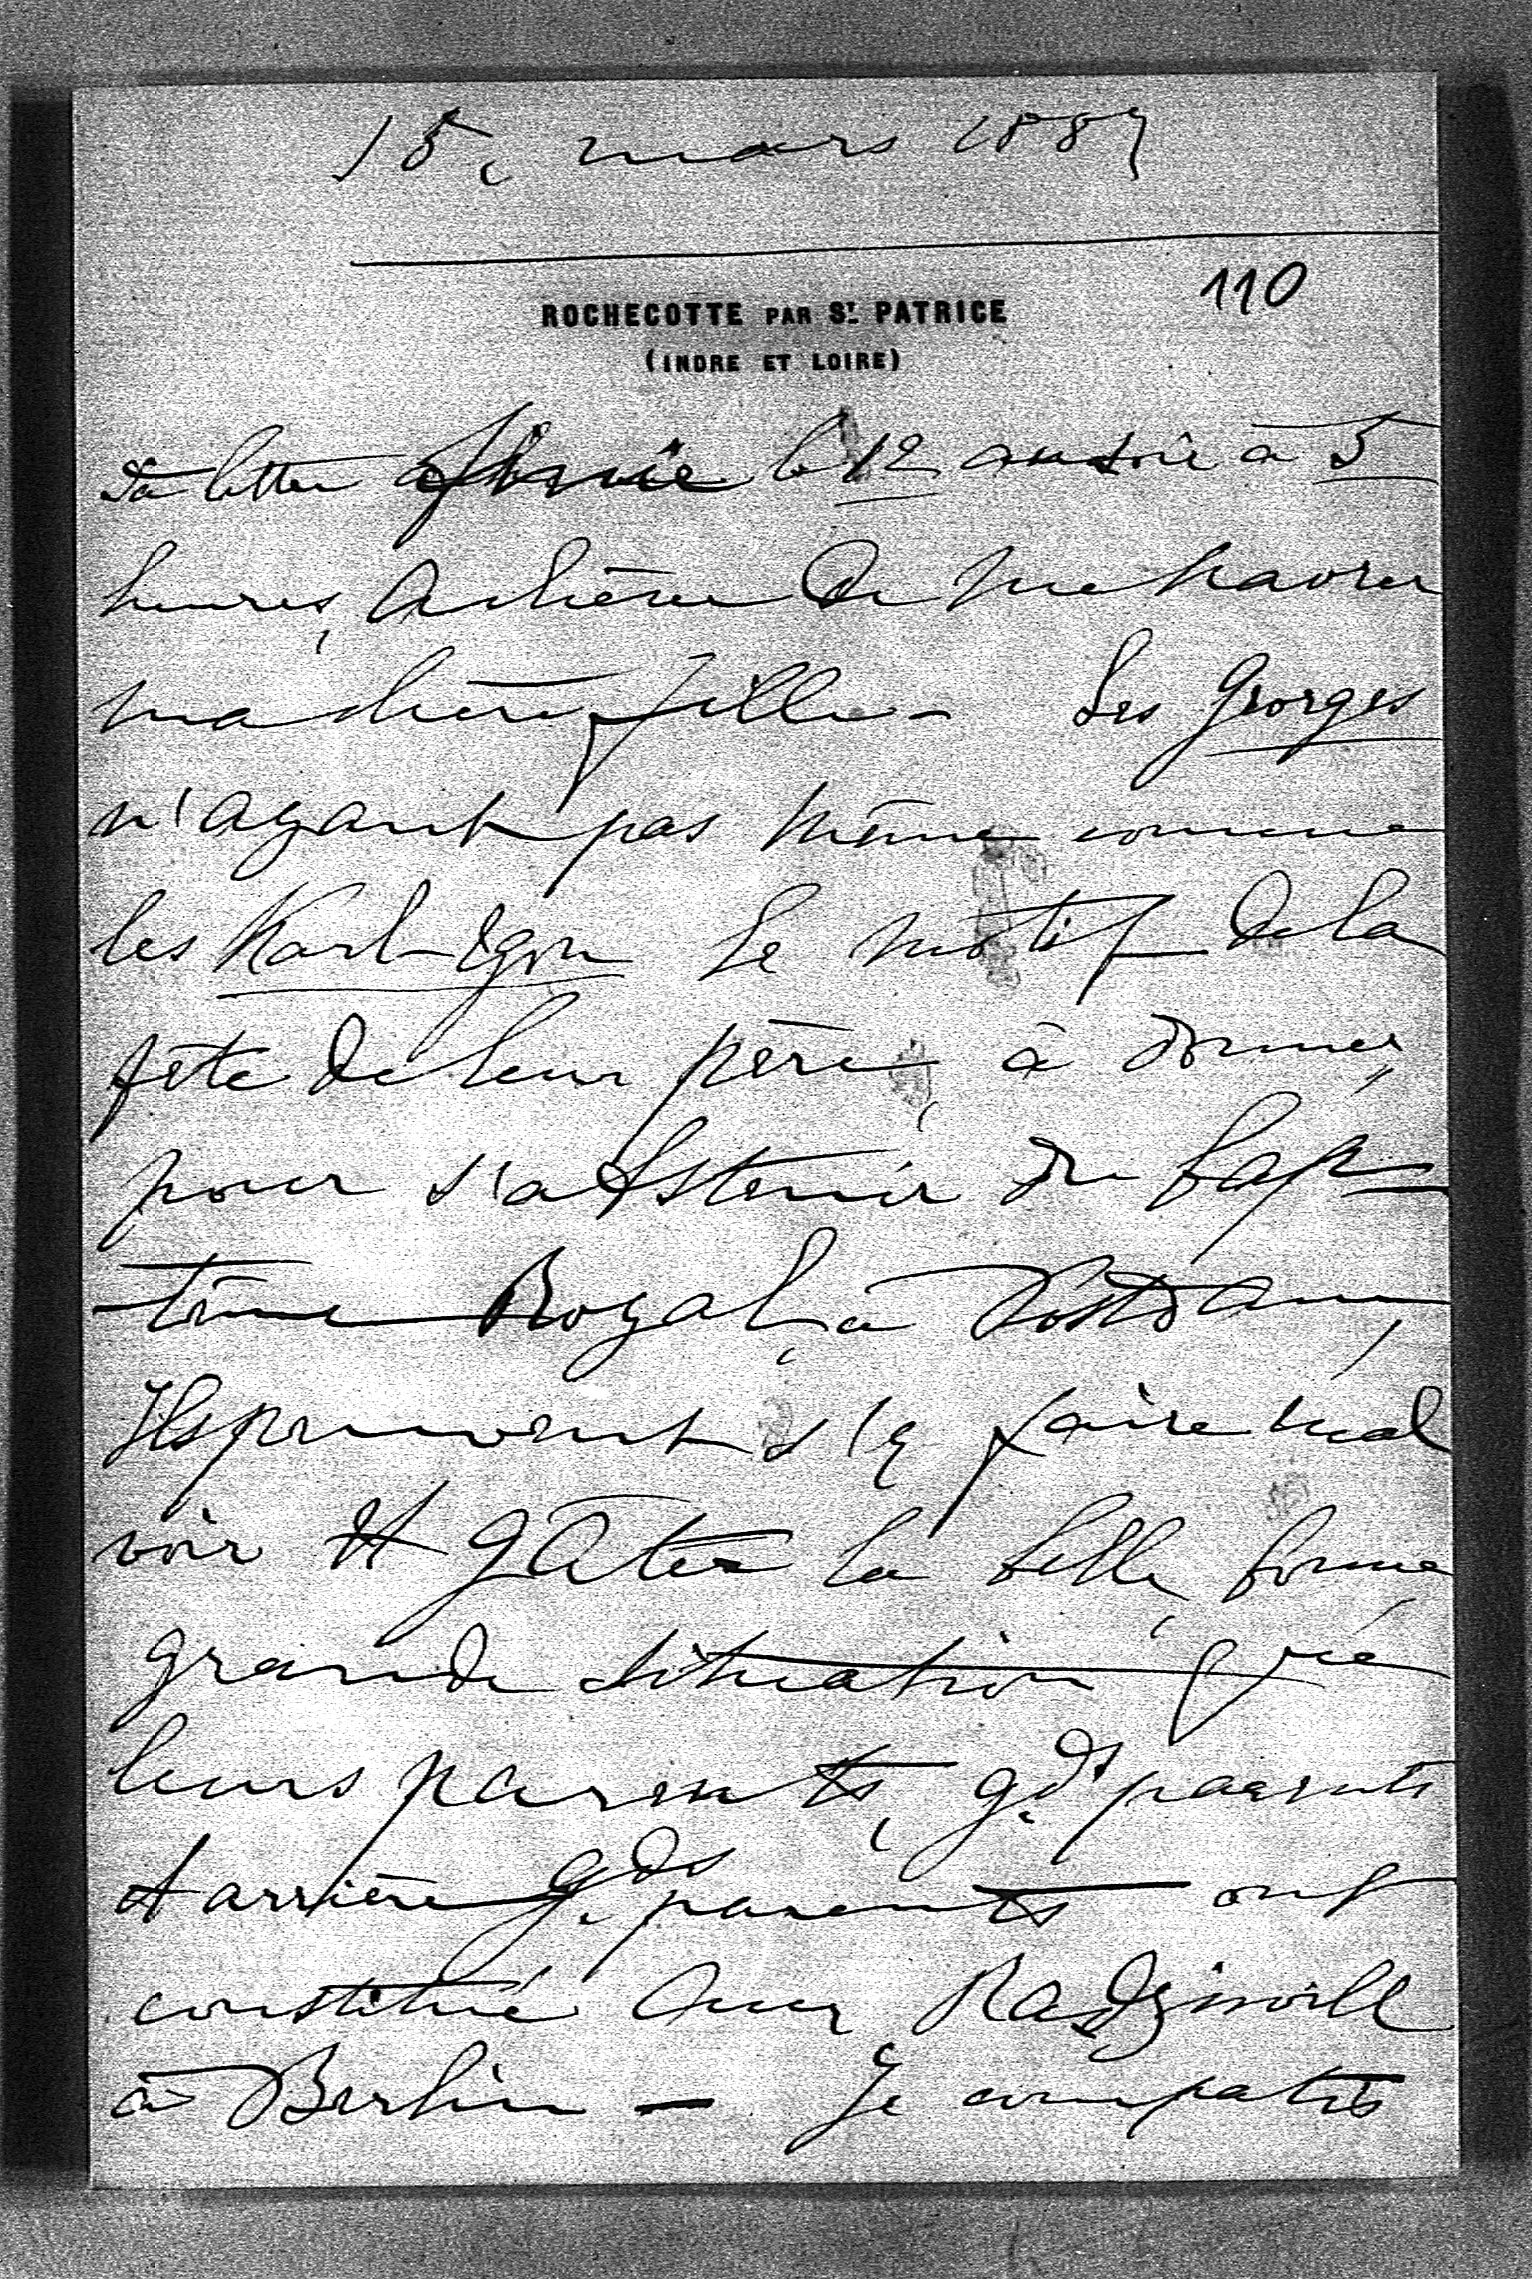 15, mars 1887
110
ROCHECOTTE PAR ST. PATRICE
(INDRE ET LOIRE)
Ta lettre finie le 12 au soir à 5
heures, achève de me navrer
ma chère fille – Les Georges
n'ayant pas même comme
les Karl-Egon le motif de la
fête de leur père, à donner,
pour s'abstenir du bap-
tême Royal, à Postdam,
Ils peuvent s'y faire mal
voir et gâter la belle, bonne
grande situation que
leurs parents, gds parents
et arrière gds parents ont
constitué aux Radziwill
à Berlin – Je compatis